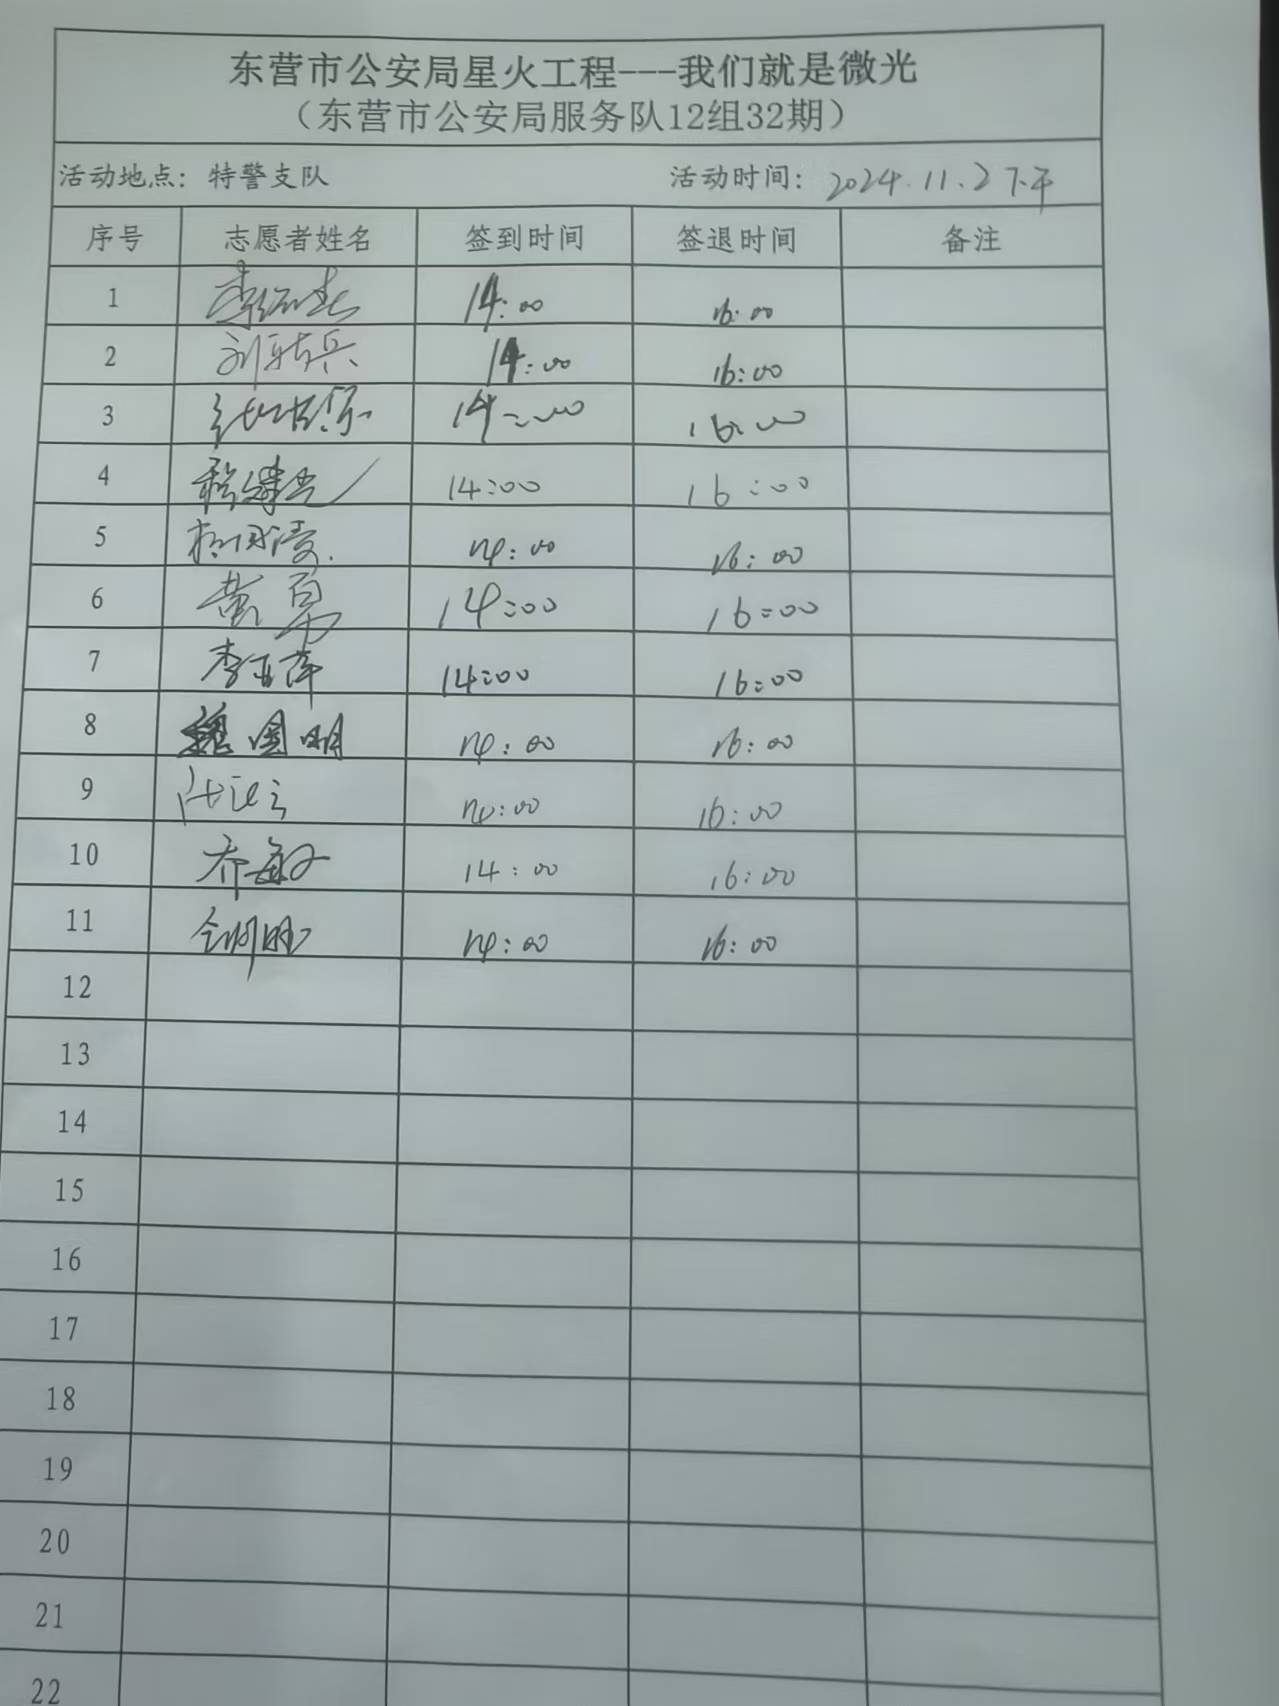 东营市公安局星火工程---我们就是微光
（东营市公安局服务队12组32期）
活动地点：特警支队 活动时间：2024.11.2下午
序号 志愿者姓名 签到时间 签退时间 备注
1 14:00 16:00
2 14:00 16:00
3 14:00 16:00
4 14:00 16:00
5 14:00 16:00
6 黄 14:00 16:00
7 李亚萍 14:00 16:00
8 魏国明 14:00 16:00
9 14:00 16:00
10 乔敏 14:00 16:00
11 14:00 16:00
12
13
14
15
16
17
18
19
20
21
22